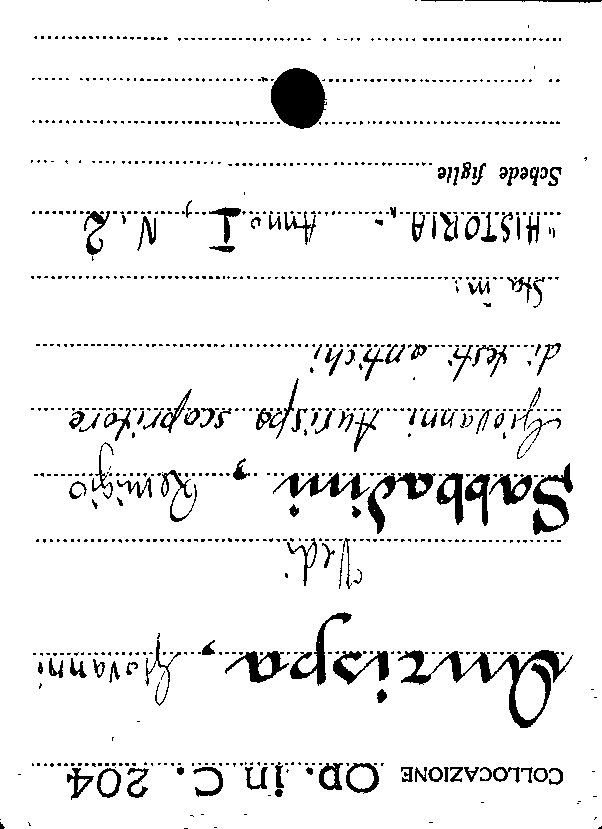 COLLOCAZIONE Op. in C. 204
Aurispa, Giovanni
Vedi
Sabbadini, Remigio
Giovanni Aurispa scopritore
di testi antichi
Sta in:
"HISTORIA", - Anno I, N. 2
Schede figlie